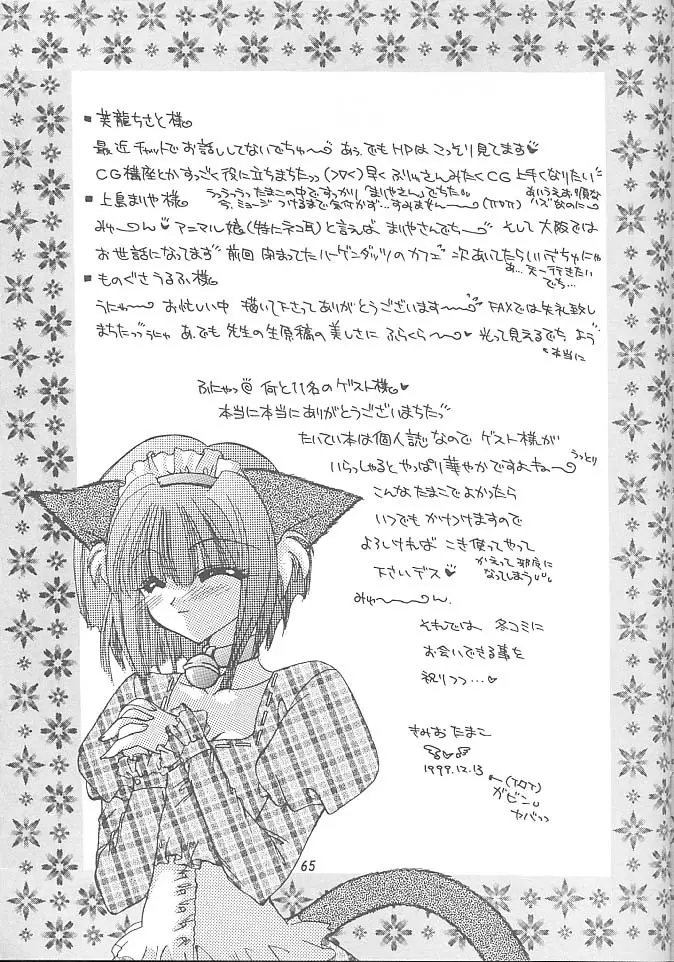 ■ 美龍ちさと様
最近 チャットで お話ししてないでちゅ〜 あぅ、でも HPは こっそり見てます♥
CG講座とか すっごく 役に立ちまちたっっ 早く ふりゅさんみたく CG 上手くなりたい
■ 上島まりや様 うっうっうったまこの中ですっかり「まりやさん」でちた あいうえお順な
今、ミュージつけるまで気付かず…すみません〜 (TДT) ハズなのに
みゅ〜ん♥ アニマル娘(特にネコ耳)と言えば、まりやさんでち〜 そして 大阪では
お世話になってます 前回 閉まってた ハーゲンダッツのカフェ 次 あいてたら いいでちゃにゃ
あ…又一行きたいでち…
■ ものぐさうるふ様
うにゃ〜 お忙しい中 描いて下さってありがとうございます〜 FAXでは失礼致し
まちたっっうにゃ あ、でも 先生の生原稿の美しさに ふらくら〜♥ 光って見えるでち、よう
↖本当に
ふにゃっ@ 何と11名のゲスト様♥
本当に本当にありがとうございまちたっ
たいてい本は個人誌なので ゲスト様が
いらっしゃると やっぱり 華やかですよキュ〜 うっとり
こんな たまこで よかったら
いつでも かけつけますので
よろしければ こき使ってやって
下さいデス♥ かえって邪魔になってしまう
みゅ〜ん.
それでは 冬コミに
お会いできる事を
祈りつつ…
きみおたまこ
1999.12.13 ← (TДT)
ガビン
ヤバっっ
65